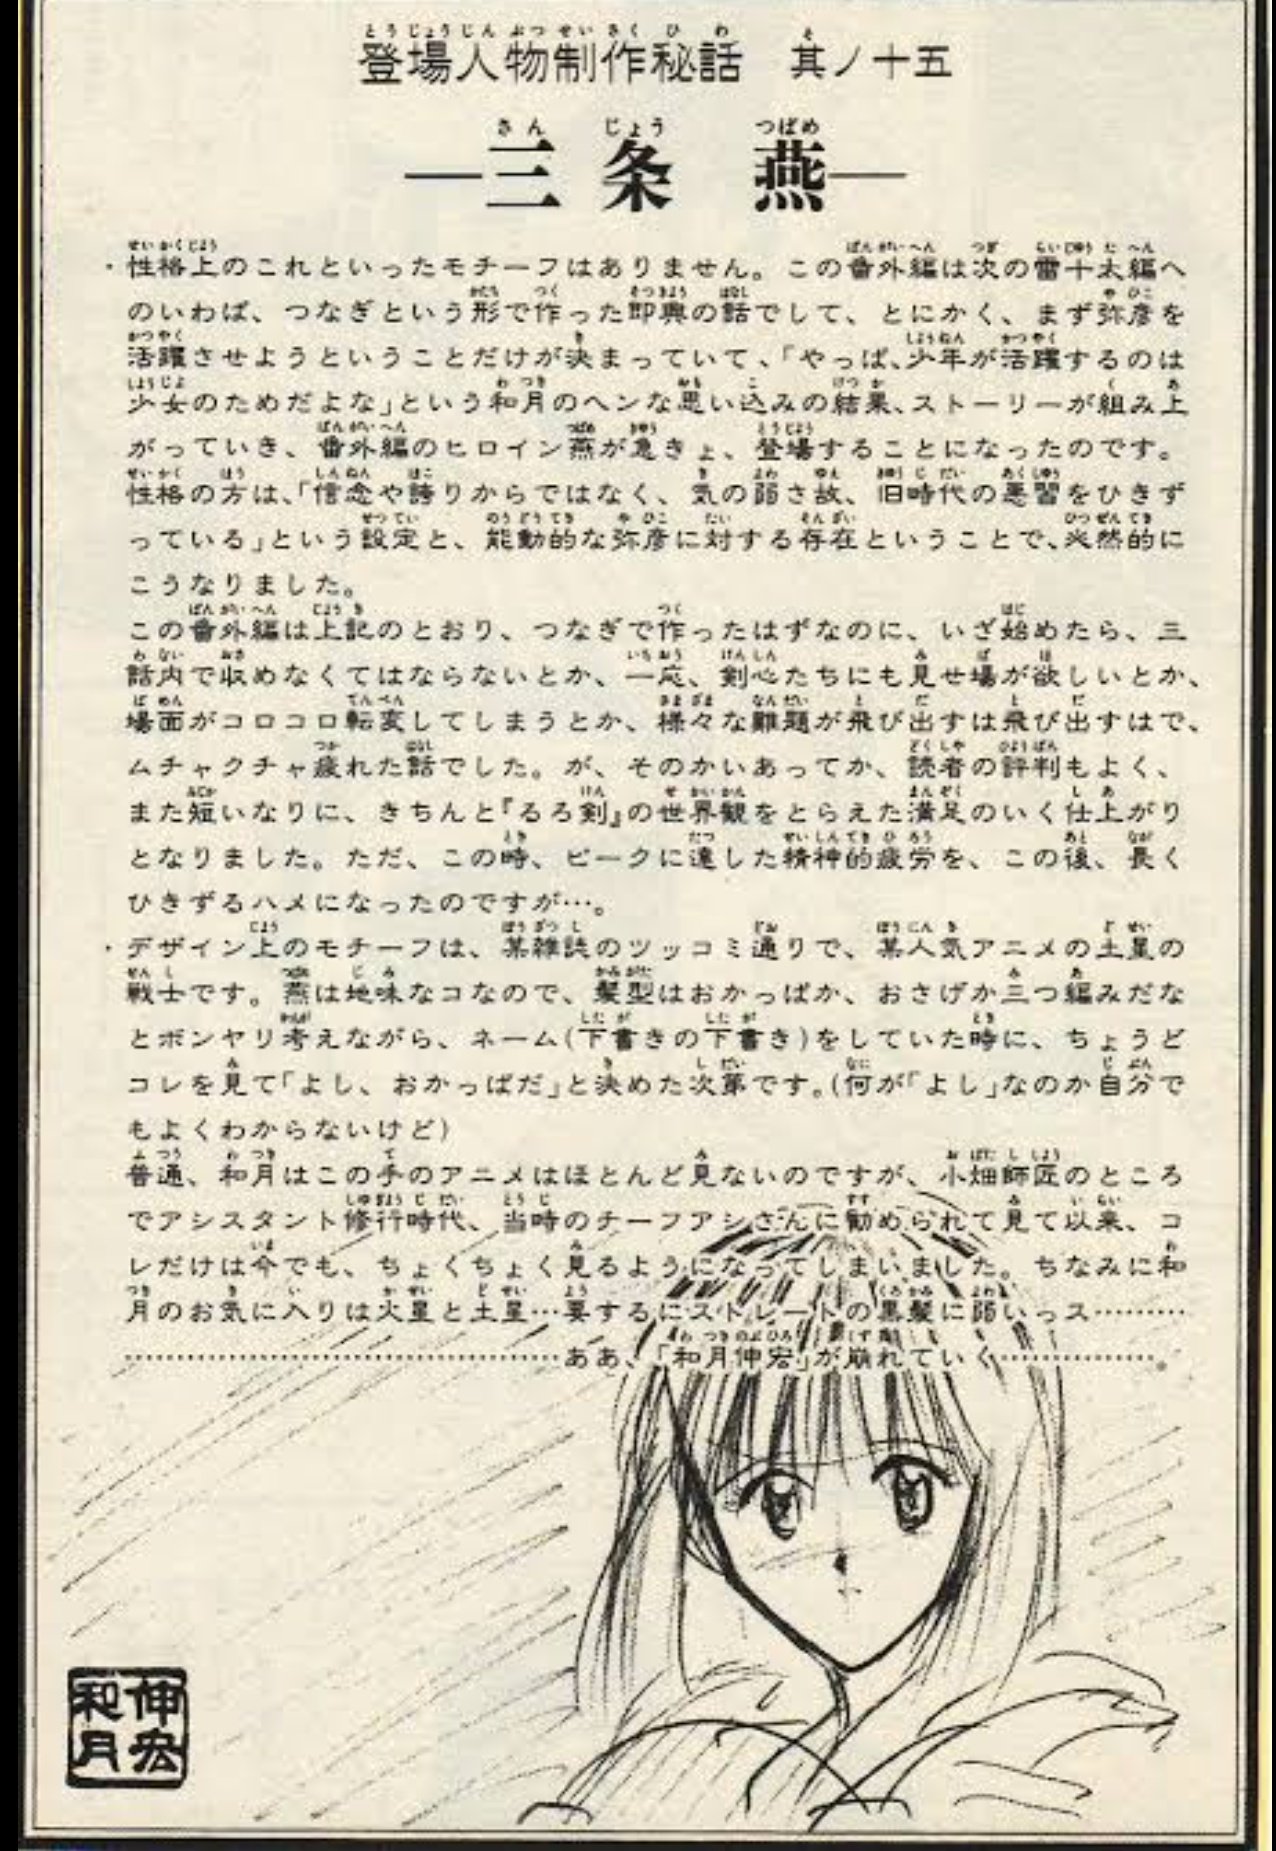 登場人物制作秘話 其ノ十五
―三条 燕―
・性格上のこれといったモチーフはありません。この番外編は次の雷十太編へ
のいわば、つなぎという形で作った即興の話でして、とにかく、まず弥彦を
活躍させようということだけが決まっていて、「やっぱ、少年が活躍するのは
少女のためだよな」という和月のヘンな思い込みの結果、ストーリーが組み上
がっていき、番外編のヒロイン燕が急きょ、登場することになったのです。
性格の方は、「信念や誇りからではなく、気の弱さ故、旧時代の悪習をひきず
っている」という設定と、能動的な弥彦に対する存在ということで、必然的に
こうなりました。
この番外編は上記のとおり、つなぎで作ったはずなのに、いざ始めたら、三
話内で収めなくてはならないとか、一応、剣心たちにも見せ場が欲しいとか、
場面がコロコロ転変してしまうとか、様々な難題が飛び出すは飛び出すはで、
ムチャクチャ疲れた話でした。が、そのかいあってか、読者の評判もよく、
また短いなりに、きちんと『るろ剣』の世界観をとらえた満足のいく仕上がり
となりました。ただ、この時、ピークに達した精神的疲労を、この後、長く
ひきずるハメになったのですが…。
・デザイン上のモチーフは、某雑誌のツッコミ通りで、某人気アニメの土星の
戦士です。燕は地味なコなので、髪型はおかっぱか、おさげか三つ編みだな
とボンヤリ考えながら、ネーム(下書きの下書き)をしていた時に、ちょうど
コレを見て「よし、おかっぱだ」と決めた次第です。(何が「よし」なのか自分で
もよくわからないけど)
普通、和月はこの手のアニメはほとんど見ないのですが、小畑師匠のところ
でアシスタント修行時代、当時のチーフアシさんに勧められて見て以来、コ
レだけは今でも、ちょくちょく見るようになってしまいました。ちなみに和
月のお気に入りは火星と土星…要するにストレートの黒髪に弱いっス………
……………………………………ああ、「和月伸宏」が崩れていく……………。
伸宏
和月